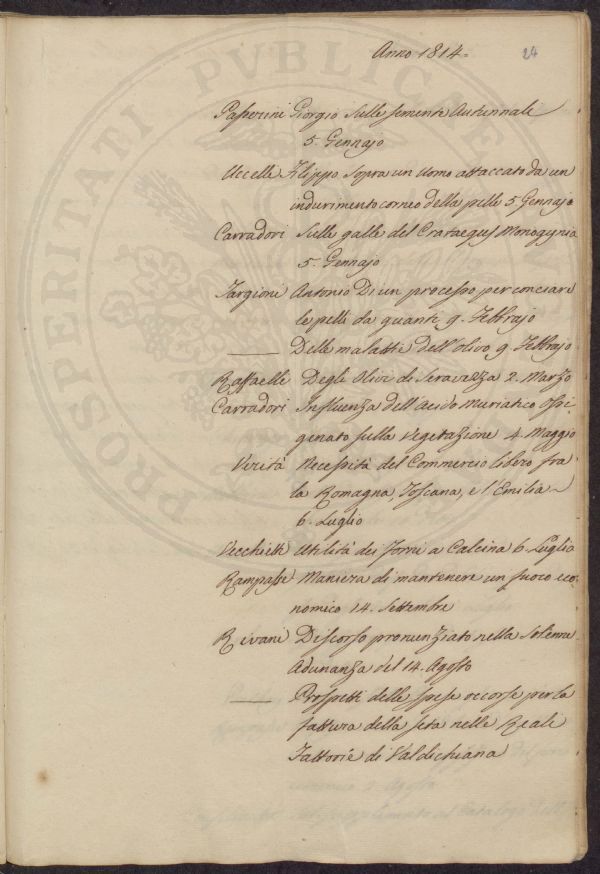 Anno 1814=
24
Passerini Giorgio Sulle semente Autunnali
5. Gennajo
Uccelli Filippo Sopra un Uomo attaccato da un
indurimento corneo della pelle 5 Gennajo
Carradori Sulle galle del Crataegus Monogynia
5. Gennajo
Targioni Antonio Di un processo per conciare
le pelli da guanti 9. Febbrajo
—— Delle malattie dell'olivo 9. Febbrajo
Raffaelli Degli Olivi di Seravezza 2. Marzo
Carradori Influenza dell'Acido Muriatico Ossi-
genato sulla Vegetazione 4. Maggio
Verità Necessità del Commercio libero fra
la Romagna, Toscana, e l'Emilia
6. Luglio
Vecchietti Utilità dei Forni a Calcina 6. Luglio
Rampasse Maniera di mantenere un fuoco eco-
nomico 14. Settembre
Rivani Discorso pronunziato nella Solenne
Adunanza del 14. Agosto
—— Prospetti delle spese occorse per la
fattura della seta nelle Reali
Fattorie di Valdichiana
PROSPERITATI PVBLICAE